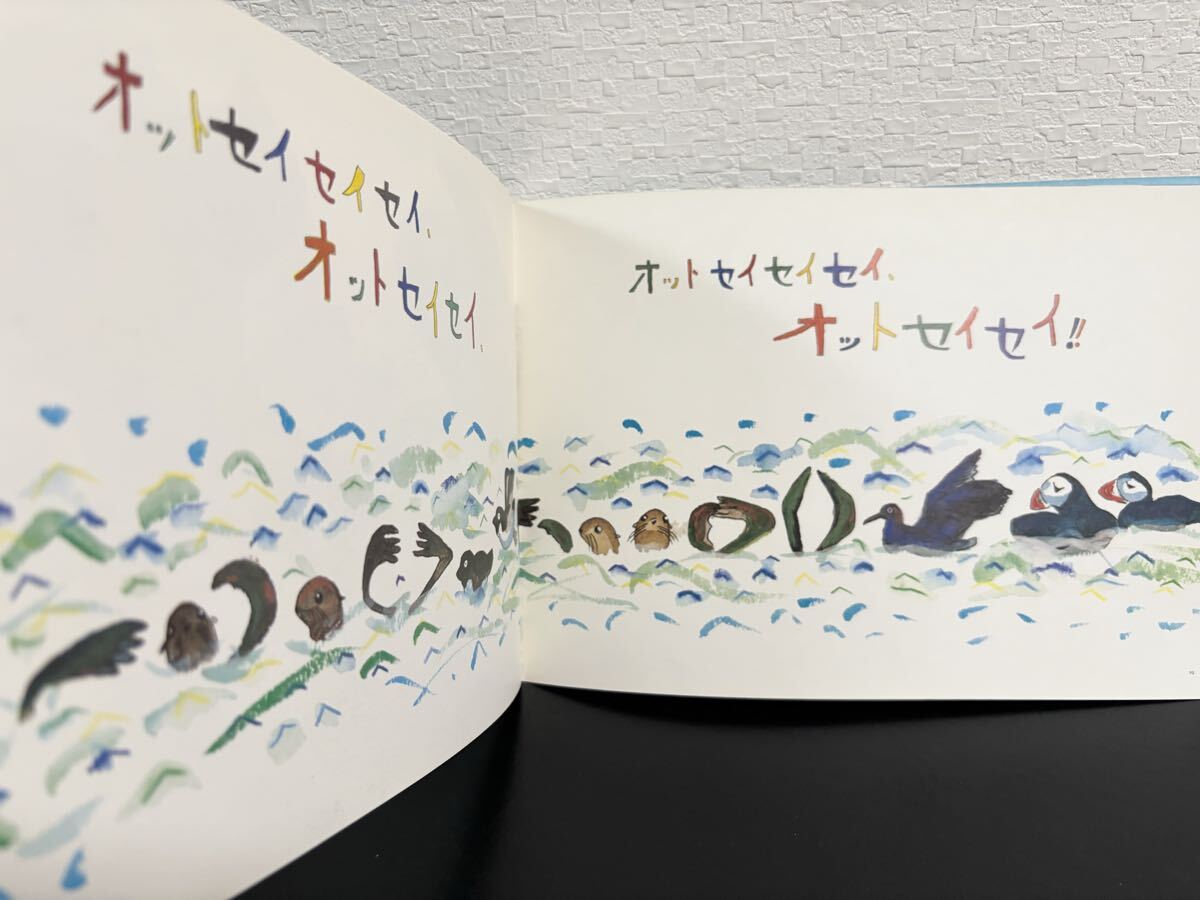 オットセイセイセイ、
オットセイセイ、
オットセイセイセイ、
オットセイセイ!!